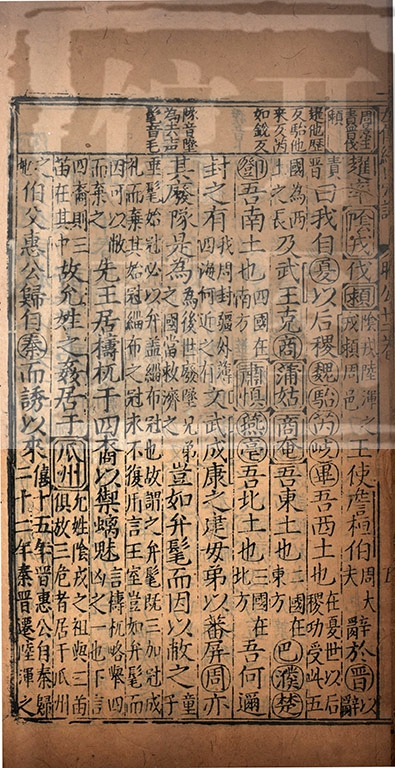 趯率陰戎伐潁陰戎陸渾之戎潁周邑王使詹桓伯周大夫辭於晉辭以
責晉曰我自夏以后稷魏駘芮岐畢吾西土也在夏世以后稷功受此五
國為西土之長及武王克商蒲姑商奄吾東土也二國在東方巴濮楚
鄧吾南土也四國在南方肅慎燕亳吾北土也三國在北方吾何邇
封之有我周封疆外薄四海何近之有文武成康之建母弟以蕃屏周亦
其廢隊是為為後世廢隊兄弟之國當救濟之豈如弁髦而因以敝之童子
垂髦始冠必以弁蓋緇布冠也故謂之弁髦既三加冠成
禮而棄其始冠緇布之冠不復用言王室豈如弁髦而
因可以敝而棄之先王居檮杌于四裔以禦螭魅言檮杌略舉四凶之一也下言
四裔則三苗在其中故允姓之姦居于瓜州允姓陰戎之祖與三苗俱放三危者居于瓜州
伯父惠公歸自秦而誘以來僖十五年晉惠公自秦歸二十二年秦晉遷陸渾之
駘他
來反芮
如銳反
隊音墜
為去声
髦音毛